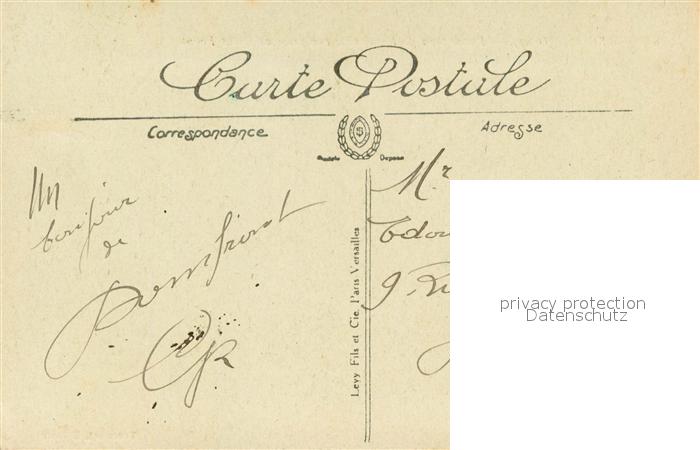 Carte Postale
Correspondance
Adresse
Modèle Déposé
Un
bonjour
de
Domfront
Mr
Edou
9. Ru
Levy Fils et Cie, Paris Versailles
privacy protection
Datenschutz